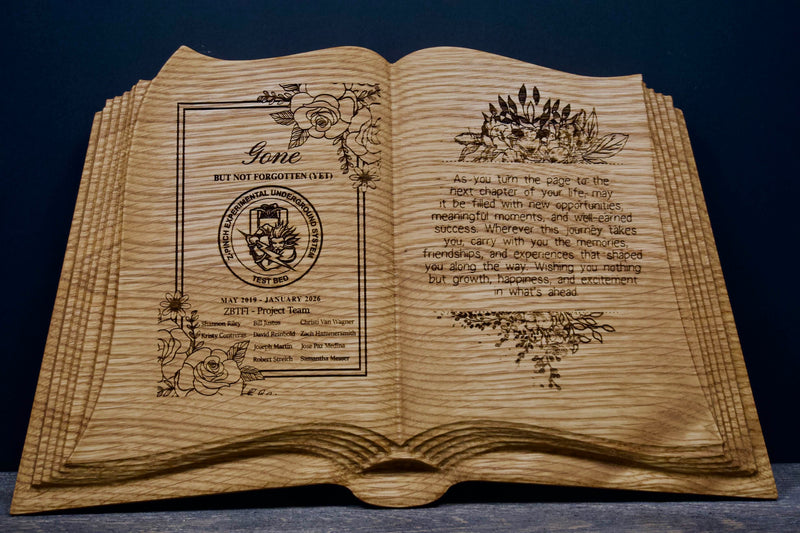 Gone
BUT NOT FORGOTTEN (YET)
Z/PINCH EXPERIMENTAL UNDERGROUND SYSTEM
TEST BED
MAY 2019 - JANUARY 2026
ZBTFI - Project Team
Shannon Riley Bill Justus Christi Van Wagner
Kristy Contreras David Reinbold Zach Hammersmith
Joseph Martin Jose Paz Medina
Robert Streich Samantha Messer
As you turn the page to the
next chapter of your life, may
it be filled with new opportunities,
meaningful moments, and well-earned
success. Wherever this journey takes
you, carry with you the memories,
friendships, and experiences that shaped
you along the way. Wishing you nothing
but growth, happiness, and excitement
in what's ahead